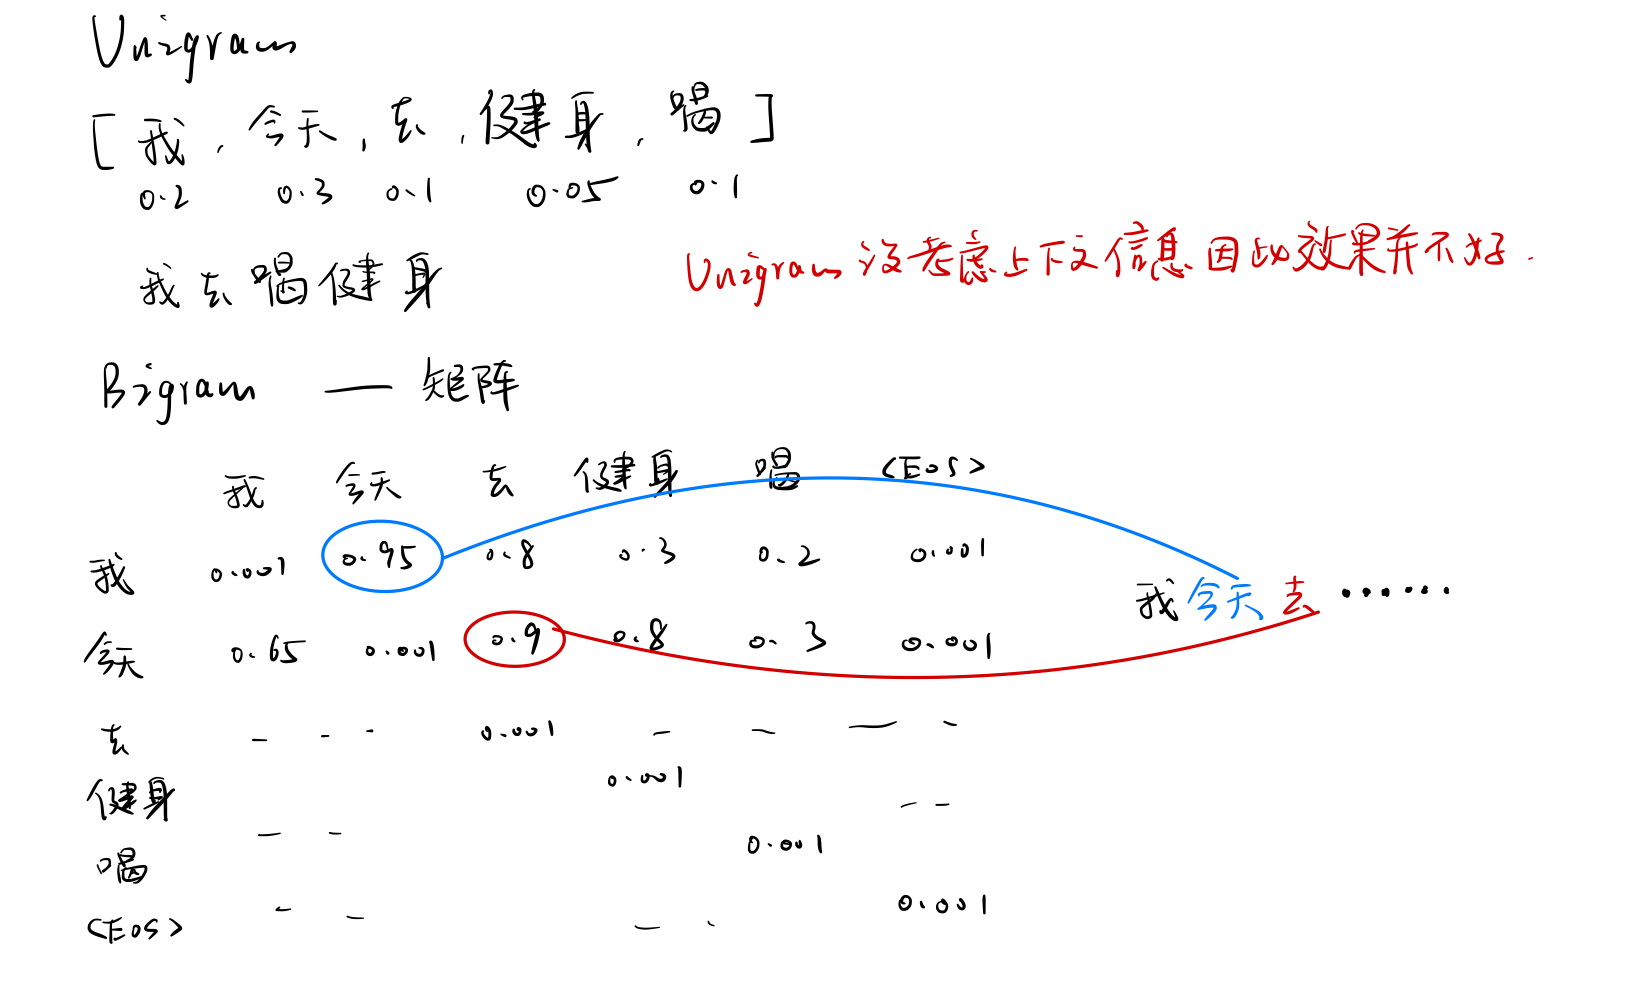 Unigram
[我, 今天, 去, 健身, 喝]
0.2 0.3 0.1 0.05 0.1
Unigram 没考虑上下文信息 因此效果并不好.
我去喝健身
Bigram — 矩阵
我 今天 去 健身 喝 <EOS>
我 0.001 0.95 0.8 0.3 0.2 0.001
我今天去 ······
今天 0.65 0.001 0.9 0.8 0.3 0.001
去 - - - 0.001 - - — -
健身 0.001 - -
喝 - - 0.001
<EOS> - - - - 0.001